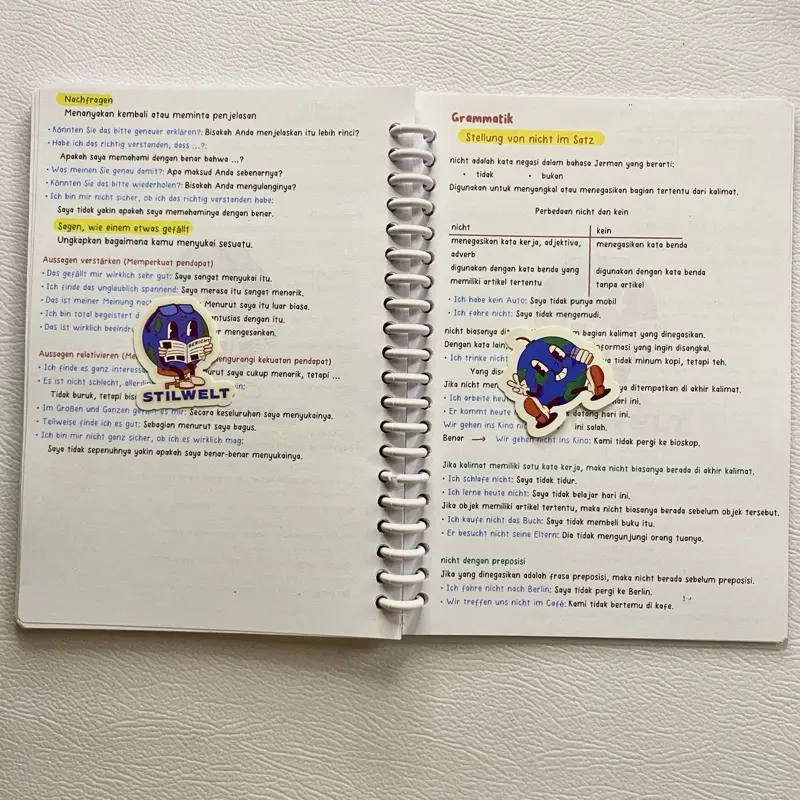 Nachfragen
Menanyakan kembali atau meminta penjelasan
• Könnten Sie das bitte genauer erklären?: Bisakah Anda menjelaskan itu lebih rinci?
• Habe ich das richtig verstanden, dass ...?:
Apakah saya memahami dengan benar bahwa ...?
• Was meinen Sie genau damit?: Apa maksud Anda sebenarnya?
• Könnten Sie das bitte wiederholen?: Bisakah Anda mengulanginya?
• Ich bin mir nicht sicher, ob ich das richtig verstanden habe:
Saya tidak yakin apakah saya memahaminya dengan benar.
Sagen, wie einem etwas gefällt
Ungkapkan bagaimana kamu menyukai sesuatu.
Aussagen verstärken (Memperkuat pendapat)
• Das gefällt mir wirklich sehr gut: Saya sangat menyukai itu.
• Ich finde das unglaublich spannend: Saya merasa itu sangat menarik.
• Das ist meiner Meinung nach Menurut saya itu luar biasa.
• Ich bin total begeistert antusias dengan itu.
• Das ist wirklich mengesankan.
Aussagen relativieren mengurangi kekuatan pendapat)
• Ich finde es ganz saya cukup menarik, tetapi ...
• Es ist nicht schlecht,
Tidak buruk, tetapi
• Im Großen und Ganzen gefällt es mir: Secara keseluruhan saya menyukainya.
• Teilweise finde ich es gut: Sebagian menurut saya bagus.
• Ich bin mir nicht ganz sicher, ob ich es wirklich mag:
Saya tidak sepenuhnya yakin apakah saya benar-benar menyukainya.
BERICHT
STILWELT
Grammatik
Stellung von nicht im Satz
nicht adalah kata negasi dalam bahasa Jerman yang berarti:
• tidak • bukan
Digunakan untuk menyangkal atau menegasikan bagian tertentu dari kalimat.
Perbedaan nicht dan kein
nicht kein
menegasikan kata kerja, adjektiva, menegasikan kata benda
adverb
digunakan dengan kata benda yang digunakan dengan kata benda
memiliki artikel tertentu tanpa artikel
• Ich habe kein Auto: Saya tidak punya mobil
• Ich fahre nicht: Saya tidak mengemudi.
nicht biasanya bagian kalimat yang dinegasikan.
Dengan kata lain, informasi yang ingin disangkal.
• Ich trinke nicht tidak minum kopi, tetapi teh.
Yang
Jika nicht ditempatkan di akhir kalimat.
• Ich arbeite hari ini.
• Er kommt heute datang hari ini.
Wir gehen ins Kino ini salah.
Benar → Wir gehen nicht ins Kino: Kami tidak pergi ke bioskop.
Jika kalimat memiliki satu kata kerja, maka nicht biasanya berada di akhir kalimat.
• Ich schlafe nicht: Saya tidak tidur.
• Ich lerne heute nicht: Saya tidak belajar hari ini.
Jika objek memiliki artikel tertentu, maka nicht biasanya berada sebelum objek tersebut.
• Ich kaufe nicht das Buch: Saya tidak membeli buku itu.
• Er besucht nicht seine Eltern: Dia tidak mengunjungi orang tuanya.
nicht dengan preposisi
Jika yang dinegasikan adalah frasa preposisi, maka nicht berada sebelum preposisi.
• Ich fahre nicht nach Berlin: Saya tidak pergi ke Berlin.
• Wir treffen uns nicht im Café: Kami tidak bertemu di kafe.